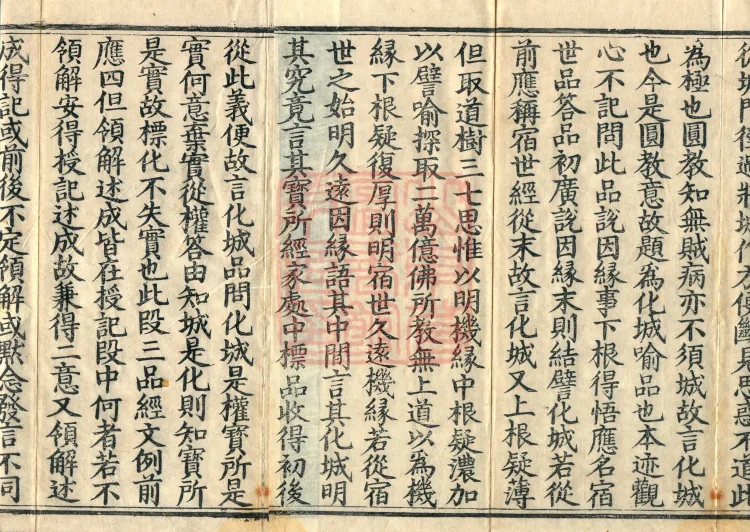 為極也圓教知無賊病亦不須城故言化城
也今是圓教意故題為化城喻品也本迹觀
心不記問此品說因緣事下根得悟應名宿
世品答品初廣說因緣末則結譬化城若從
前應稱宿世經從末故言化城又上根疑薄
但取道樹三七思惟以明機緣中根疑濃加
以譬喻探取二萬億佛所教無上道以為機
緣下根疑復厚則明宿世久遠機緣若從宿
世之始明久遠因緣語其中間言其化城明
其究竟言其寶所經家處中標品收得初後
從此義便故言化城品問化城是權寶所是
實何意棄實從權答由知城是化則知寶所
是實故標化不失實也此段三品經文例前
應四但領解述成皆在授記段中何者若不
領解安得授記述成故兼得二意又領解述
成得記或前後不定領解或默念發言不同